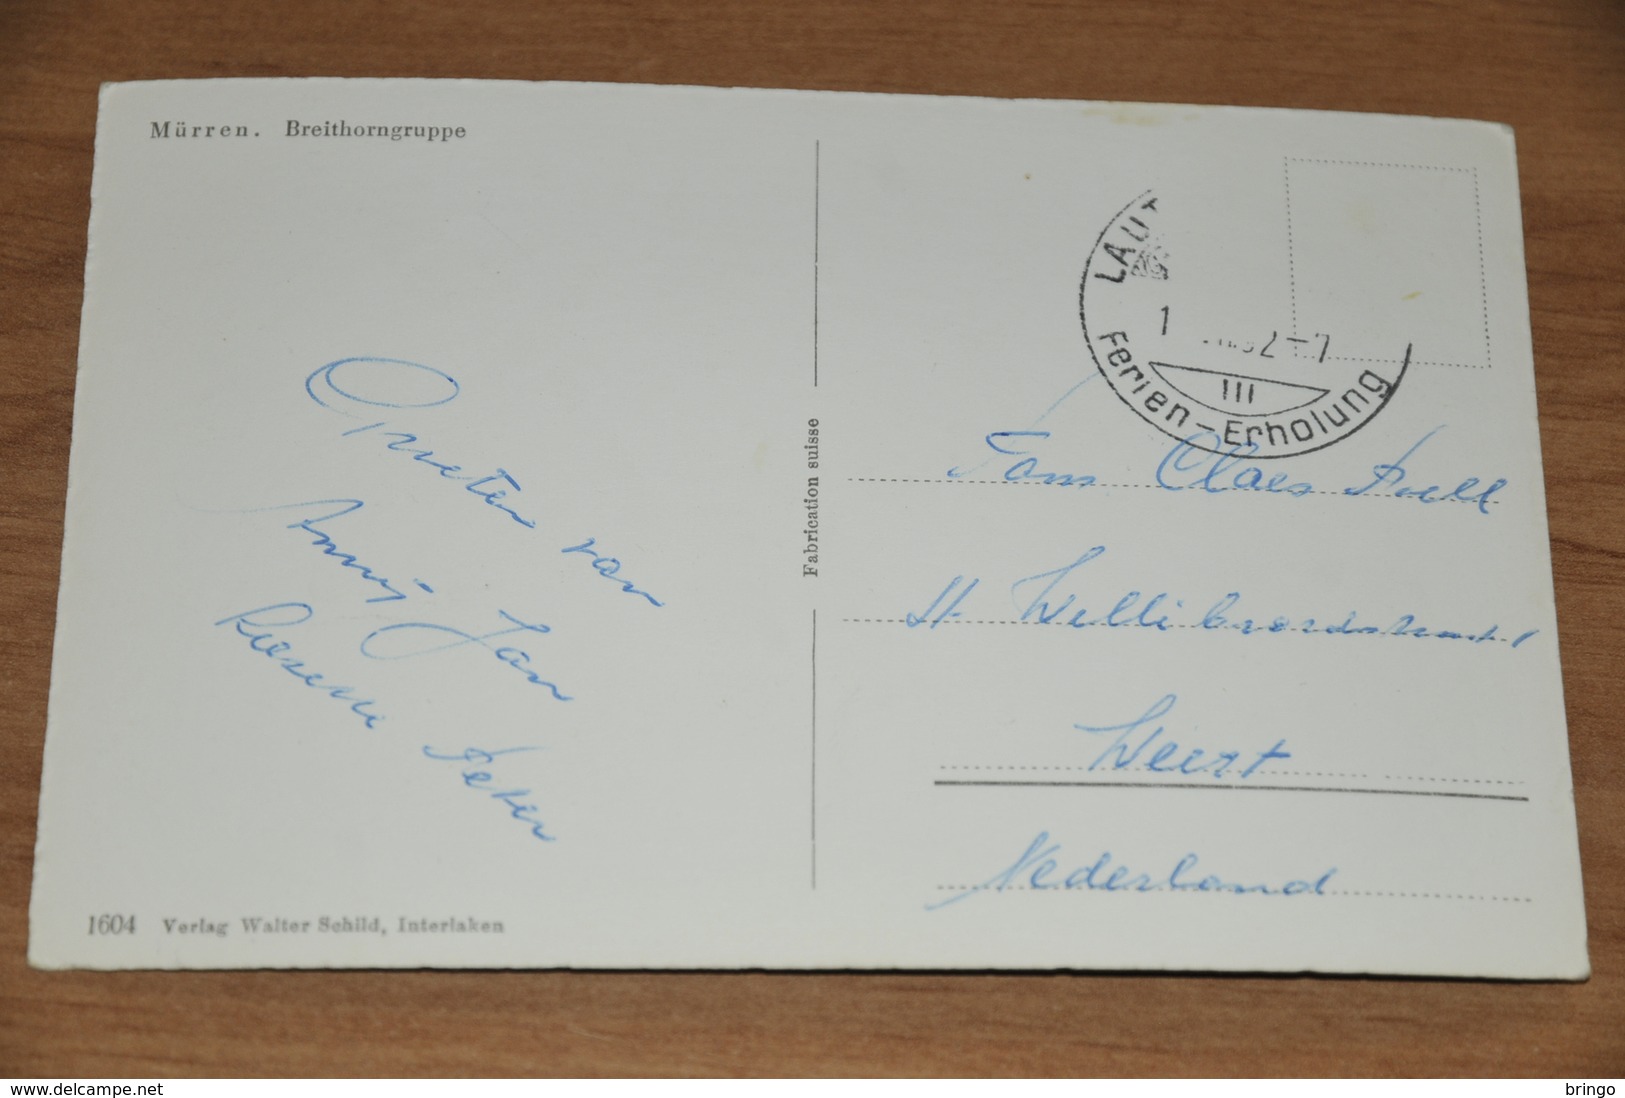 Mürren. Breithorngruppe
Groeten van
Annij Jan
Peter
1604 Verlag Walter Schild, Interlaken
Fabrication suisse
LAUT
1 2-7
III
Ferien-Erholung
Fam Claes
St Willibrordstraat 1
Weert
Nederland
delcampe.net
bringo